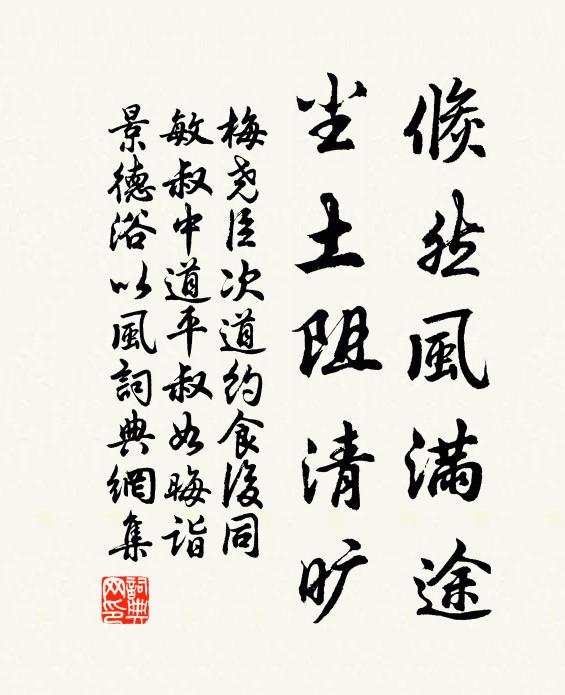 倏然風滿途
尘土阻清旷
梅尧臣次道約食後同
敏叔中道平叔如晦詣
景德浴以風詞典網集
詞典网印